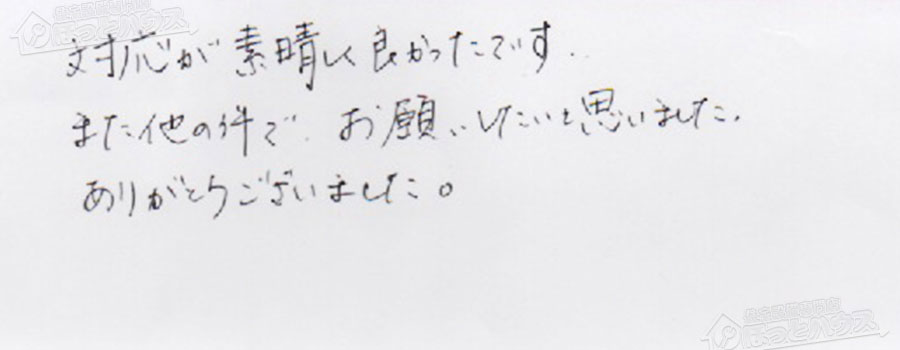 対応が素晴しく良かったです.
また他の件で、お願いしたいと思いました.
ありがとうございました。
ほっとハウス
ほっとハウス